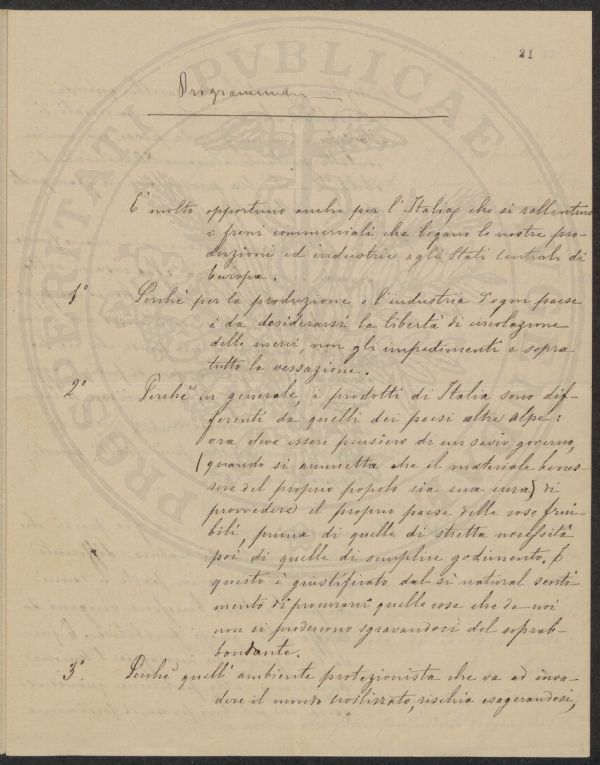 21
Programma
È molto opportuno anche per l'Italia, che si rallentino
i freni commerciali che legano le nostre pro-
duzioni ed industrie agli Stati Centrali di
Europa.
1° Perchè per la produzione e l'industria d'ogni paese
è da desiderarsi la libertà di circolazione
delle merci, non gli impedimenti e sopra
tutto la vessazione.
2° Perchè in generale, i prodotti di Italia sono dif-
ferenti da quelli dei paesi oltre alpe:
ora deve essere pensiero di un savio governo,
(quando si ammetta che il materiale benes-
sere del proprio popolo sia sua cura) di
provvedere il proprio paese delle cose frui-
bili, prima di quelle di stretta necessità
poi di quelle di semplice godimento. E
questo è giustificato dal sì natural senti-
mento di procurarsi quelle cose che da noi
non si producono sgravandoci del soprab-
bondante.
3° Perchè quell'ambiente protezionista che va ad inva-
dere il mondo civilizzato, rischia esagerandosi,
PROSPERITATI PVBLICAE